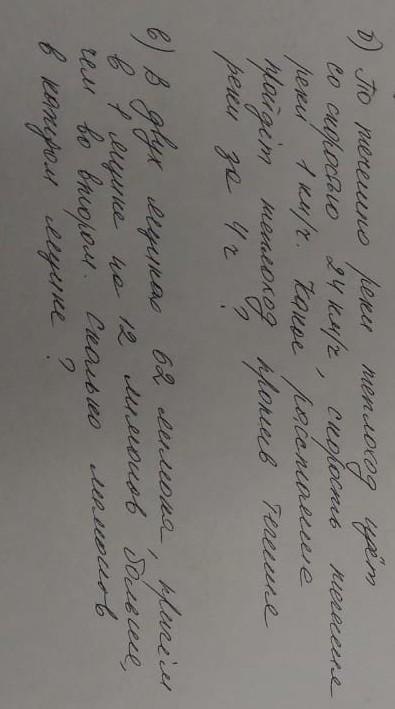 б) По течению реки теплоход идёт
со скоростью 24 км/ч, скорость течения
реки 1 км/ч. Какое расстояние
пройдёт теплоход против течения
реки за 4 ч ?
в) В двух ящиках 62 лимона, причём
в 1 ящике на 12 лимонов больше,
чем во втором. Сколько лимонов
в каждом ящике ?